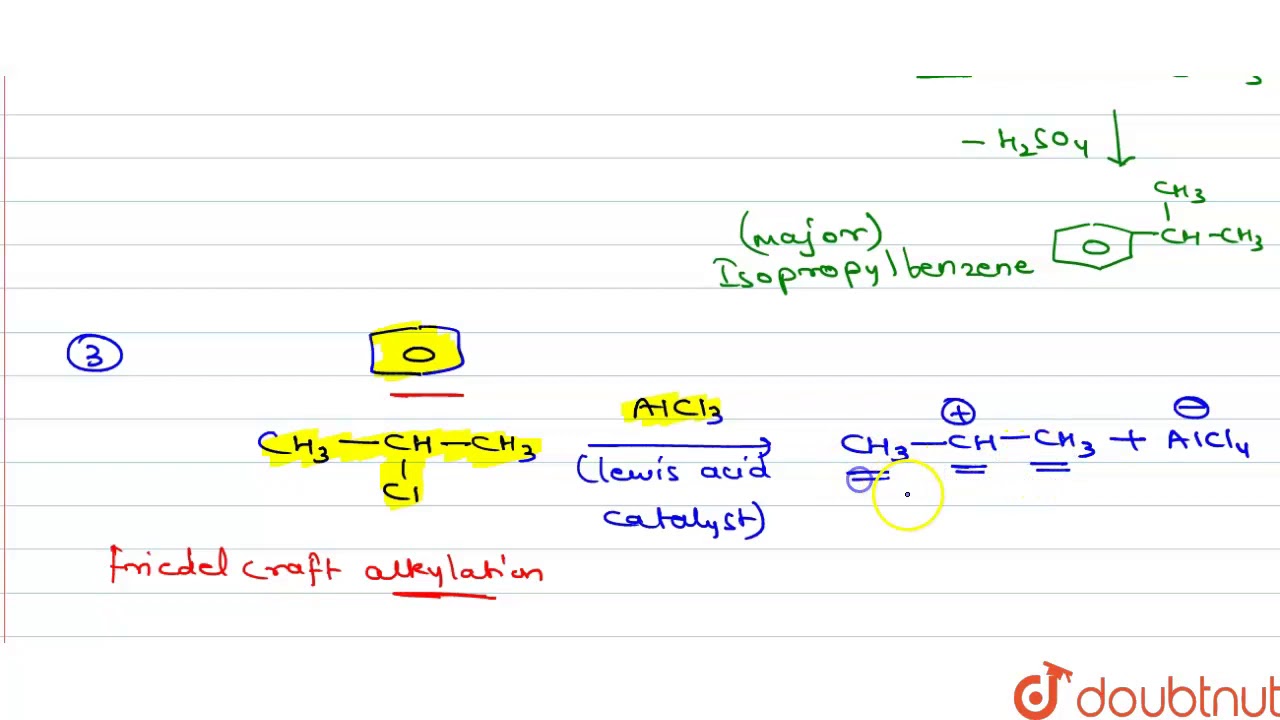 - H2SO4
CH3
CH-CH3
(major)
Isopropylbenzene
3
AlCl3
CH3-CH-CH3
Cl
(lewis acid
catalyst)
+ -
CH3-CH-CH3 + AlCl4
friedel craft alkylation
doubtnut